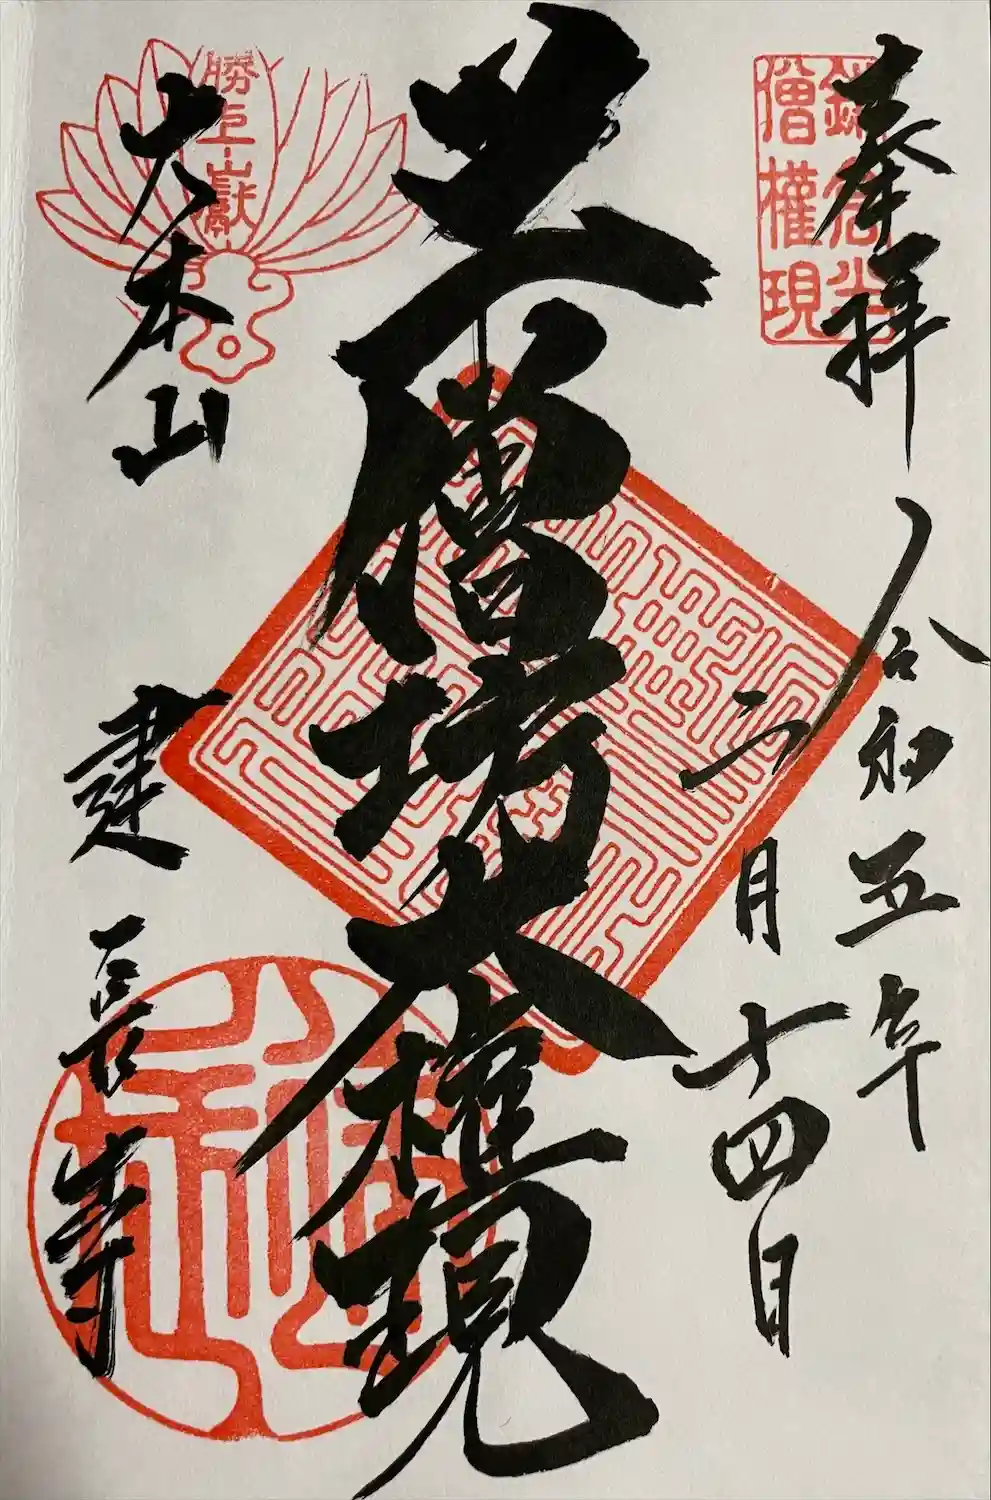 奉拝
鎌倉半
僧權現
令和五年
二月十四日
半僧坊大権現
勝上嶽
大本山
建長寺